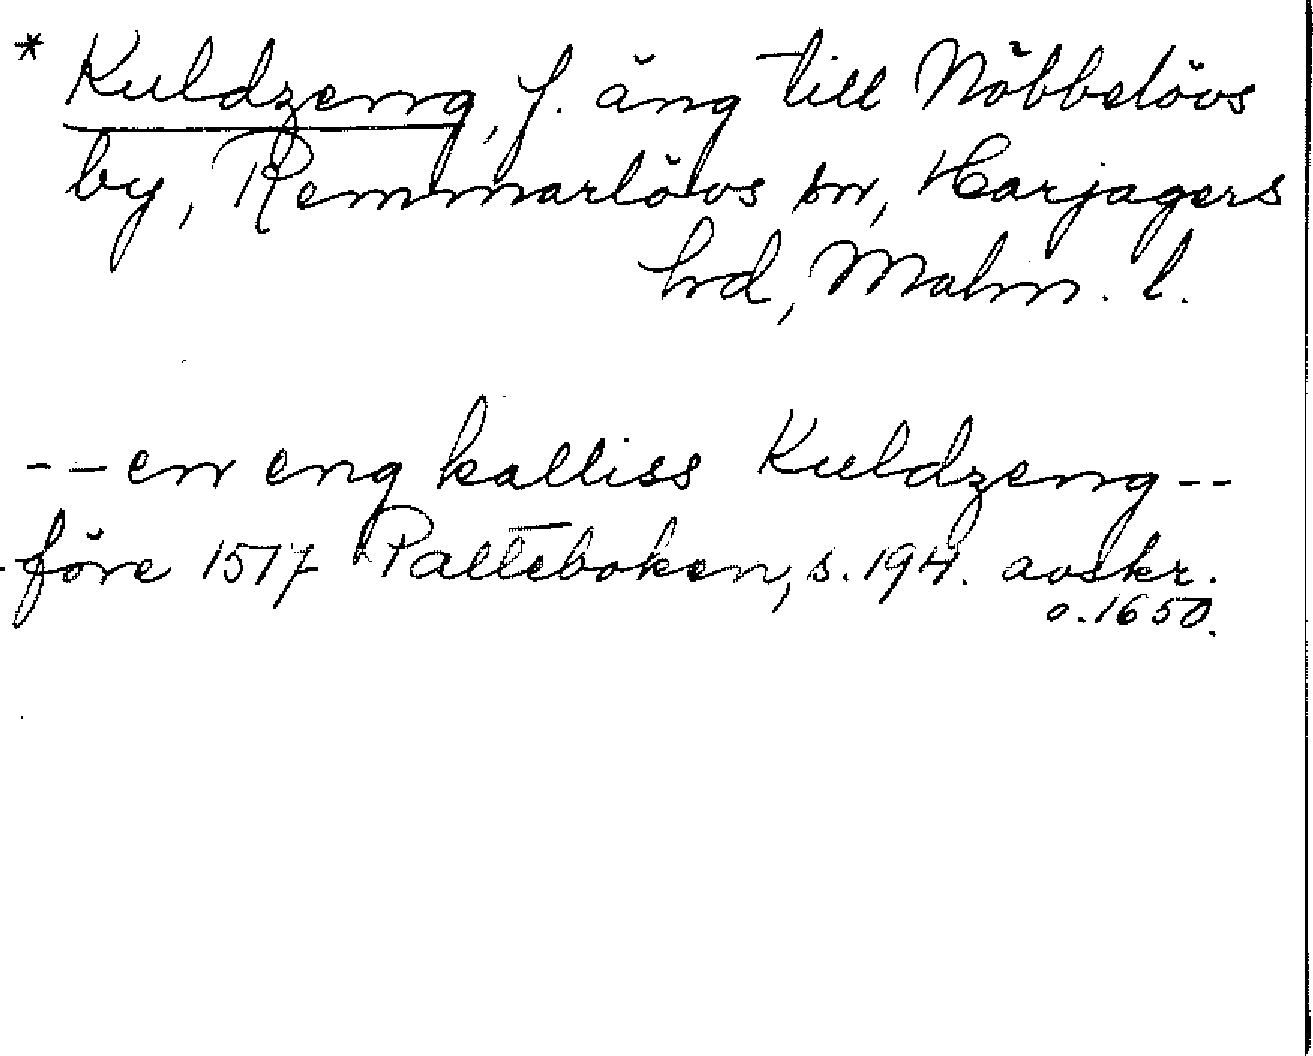 * Kuldzeng, f. äng till Nöbbelövs
by, Remmarlövs sn, Harjagers
hrd, Malm. l.
-- en eng kalliss Kuldzeng --
före 1517 Palteboken, s. 194. avskr.
o. 1650.